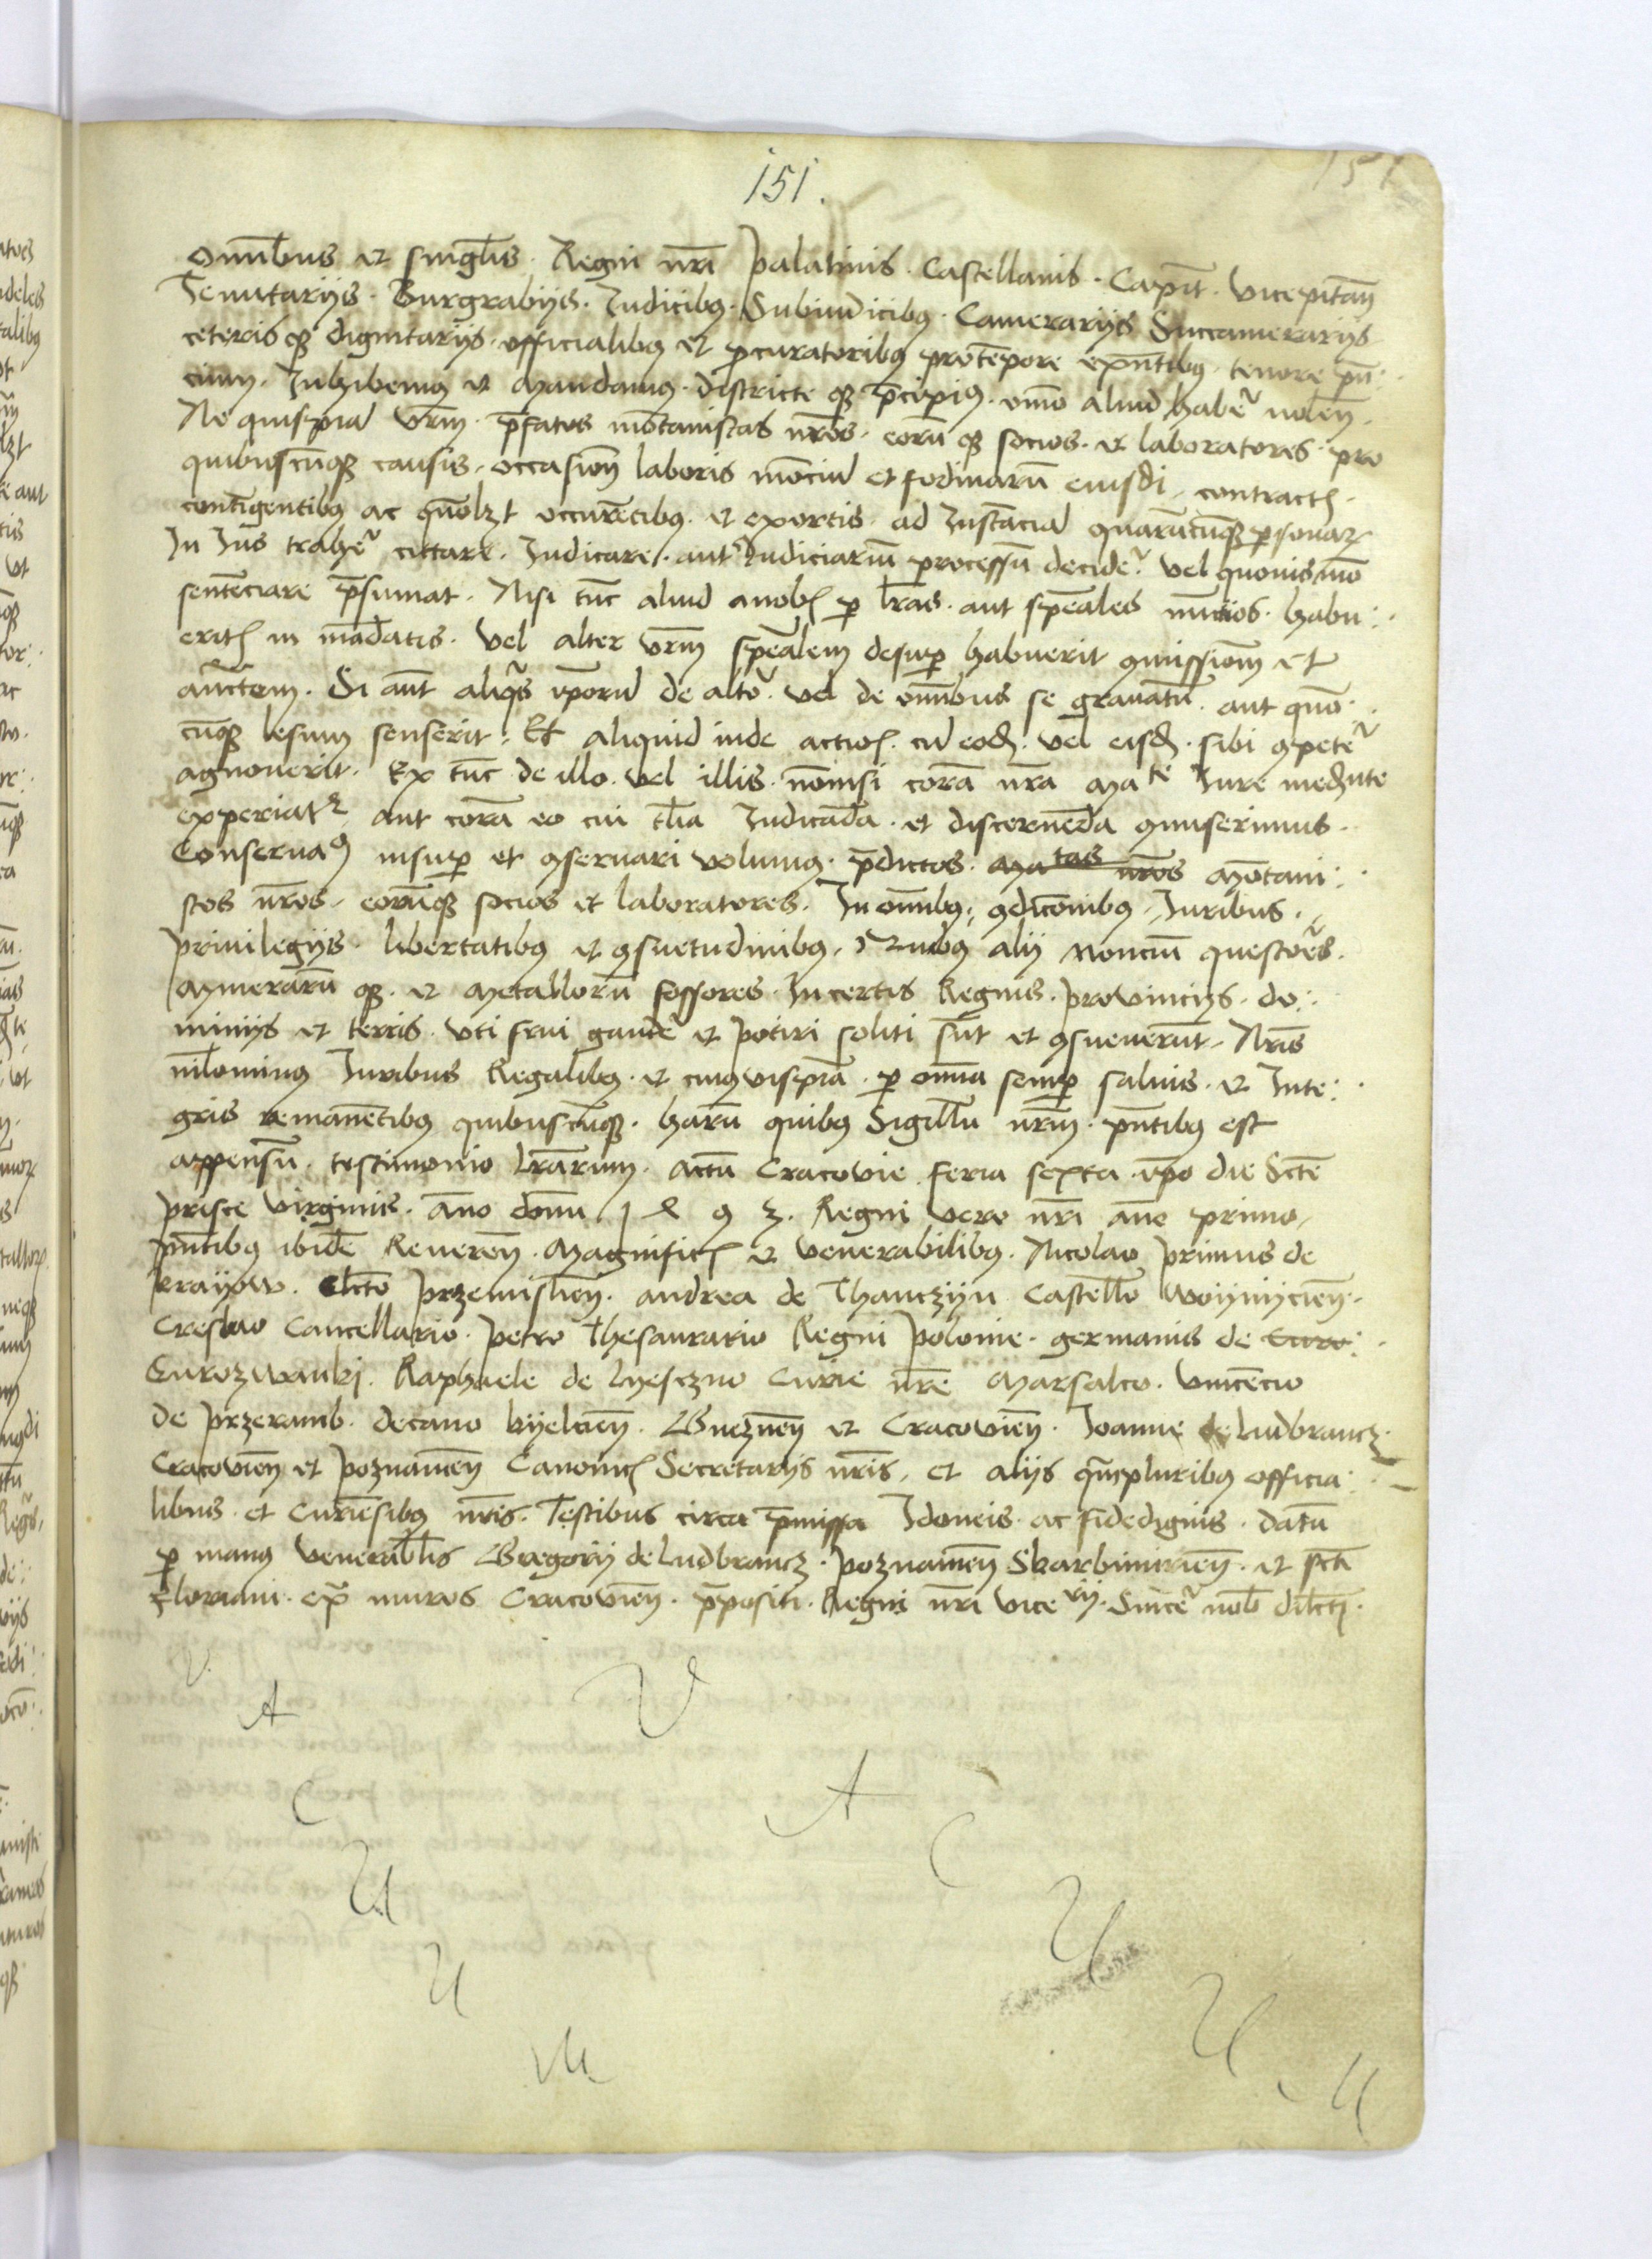 151.
151
omībus et singlis. Regni nrī palatinis. Castellanis. Capit. vicepitan
Tenutariis. Burgrabiis. Iudicibus. Subiudicibus. Camerariis Succamerariis
ceterisque dignitariis. officialibus et procuratoribus protempore exntibus. tenore pn:
cium. Inhibemus et Mandamus. districteque precipimus. omo aliud habere nolen.
Ne quispiam vrm. prefatos motanistas nros. eorumque socios. et laboratores. pro
quibuscunque causis. occasion laboris mocium et fodinarum eiusdi. contract
contigentibus ac quolzt occurretibus. et exortis. ad Instacia quarucunque personar
In Ius trahere cittare. Iudicare. aut Iudiciarium processum decidere. vel quouis mo
sentenciare presumat. Nisi tunc aliud anob per lras. aut speales nucios. habu:
erit in madatis. Vel alter vrm spealem desuper habuerit comissionem et
auctem. Si aut aliquis ipsorum de altero. vel de omibus se grauatum. aut quo:
cunque lesum senserit. Et aliquid inde action. cum eod. vel eisd. sibi competere
agnouerit. Ex tunc de illo. vel illis. nonnisi cora nra Mate Iure mediante
experiatur aut cora eo cui talia Iudicada. et discernenda comiserimus.
Conseruamus insuper et conseruari volumus. predictos. Matas nros Motani:
stos nros. eorumque socios et laboratores. In omibus. condiconibus. Iuribus.
priuilegiis. libertatibus et consuetudinibus. Quibus alii Moncium questores.
Mineraru que. et Metallorum fossores. In certis Regnis. prouinciis. do:
miniis et terris. vti frui gaude et potiri soliti sunt et consueuerunt. Nris
nilominus Iuribus Regalibus. et cuiusuispia. per omia semper saluis. et Inte:
gris remanentibus quibuscunque. harum quibus Sigillu nrm. pntibus est
appensum. testimonio lrarum. Actu Cracouie feria sexta ipo die Scte
prisce virginis. Ano domi 1 4 9 3. Regni vero nri ano primo.
pntibus ibide Reueren. Magnific et Venerabilibus. Nicolao primus de
krayow. Elcto przemislien. Andrea de Thanczyn Castello Woynicien.
Creslao Cancellario. petro Thesaurario Regni polonie. germanis de Curo:
Curozwanki. Raphaele de Lyesczno Curie nre Marsalco. Vincencio
de przeramb. decano kyelcien. Gneznen et Cracouien. Ioanne de Ludbrancz.
Cracouien et poznanien Canonic Secretariis nris. et aliis quampluribus officia:
libus. et Curiensibus nris. Testibus circa premissa Idoneis. ac fidedignis. Datum
per manus Venerablis Gregorii de Ludbrancz. poznanien Skarbimirien. et scti
Floriani. extra muros Cracouien. prepositi. Regni nri vice rii. Sincere nob dilcti.
V A C U U M
V A C U U M